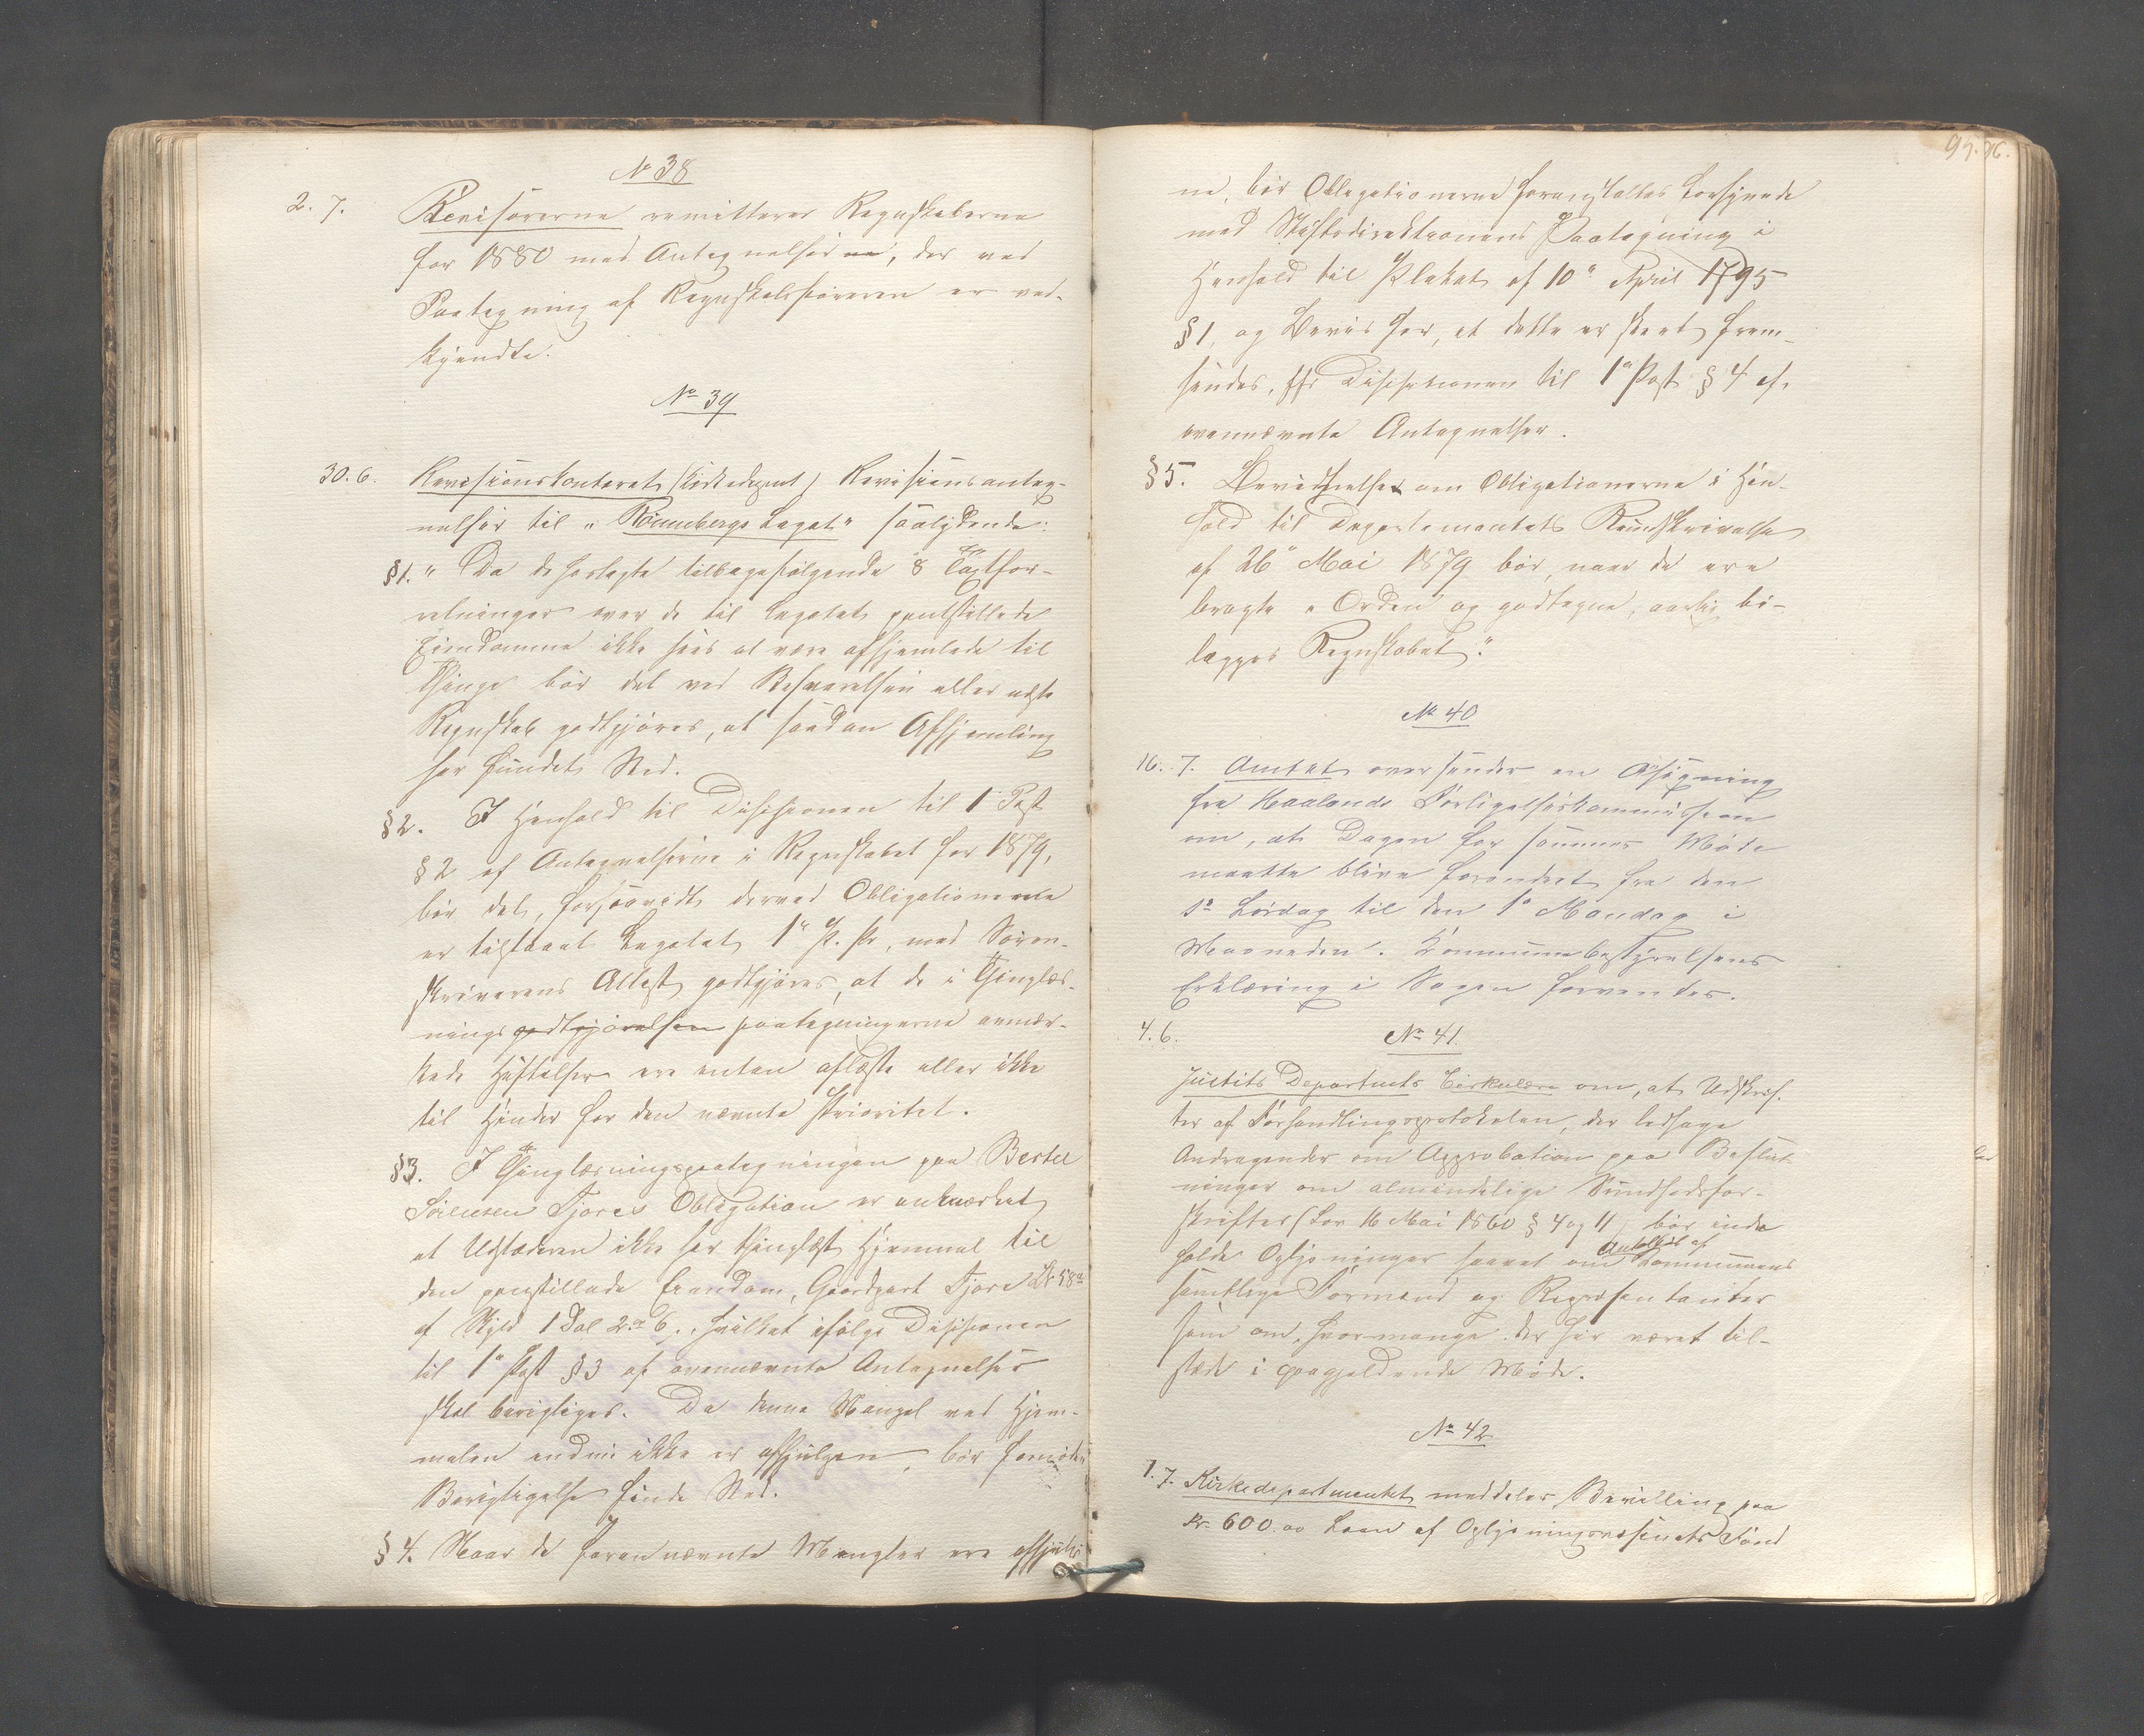 No 38
2. 7. Revisorerne remitterer Regnskaberne
for 1880 med Antegnelser, der ved
Paategning af Regnskabsføreren er ved-
kjendte.
No 39
30. 6. Revisionskontoret (Kirkedepmt) Revisionsanteg-
nelser til "Rønnbergs Legat" saalydende:
§1. "Da de forlagte tilbagefølgende 8 Taxtfor-
retninger over de til Legatet pantstillede
Eiendomme ikke sees at være afhjemlede til
Thinge bør det ved Besvarelsen eller næste
Regnskab godtgjøres, at saadan Afhjemling
har fundet Sted.
§2. I Henhold til Desisionen til 1 Post
§2 af Antegnelserne i Regnskabet for 1879,
bør det, forsaavidt derved Obligationerne
er tilstaaet Legatet 1ste P. Pr, med Soren-
skriverens Attest godtgjøres, at de i Thinglæs-
nings godtgjørelsen paategningerne anmær-
kede Heftelser ere enten aflæste eller ikke
til Hinder for den nævnte Prioritet.
§3. I Thinglæsningspaategningen paa Bertel
Sørensen Tjores Obligation er anmærket
at Udstederen ikke har thinglæst Hjemmel til
den panstillede Eiendom, Gaardpart Tjore Lb 58a
af Skyld 1 Dal 2 6, hvilket ifølge Desisionen
til 1 Post §3 af ovennævnte Antegnelser
skal berigtiges. Da denne Mangel ved Hjem-
melen endnu ikke er afhjulpen, bør
Berigtigelse finde Sted.
§4. Naar de forannævnte Mangler ere afhjulp
95. 96.
ne, bør Obligationerne foranstaltes forsynede
med Stiftsdirektionens Paategning i
Henhold til Plakat af 10 April 1795
§1, og Bevis for, at dette er skeet frem-
sendes, jfr Desisionen til 1 Post §4 af
ovennævnte Antegnelser.
§5. om Obligationerne i Hen-
hold til Departementets Rundskrivelse
af 26 Mai 1879 bør, naar de ere
bragte i Orden og godtagne, aarlig bi-
lægges Regnskabet."
No 40
16. 7. Amtet oversender en Ansøgning
fra Haalands Forligelseskommission
om, at Dagen for sammes Møde
maatte blive forandret fra den
1ste Lørdag til den 1ste Mandag i
Maaneden. Kommunebestyrelsens
Erklæring i Sagen forventes.
4. 6. No 41
Justits Departmts Cirkulære om, at Udskrif-
ter af Forhandlingsprotokolen, der ledsage
Andragender om Approbation paa Beslut-
ninger om almindelige Sundhedsfor-
skrifter (Lov 16 Mai 1860 § 4 og 11) bør inde
holde Oplysninger saavel om Antallet af Kommunens
samtlige Formænd og Repræsentanter
som om, hvormange der har været til-
stede i paagjældende Møde.
No 42
7. 7. Kirkedepartmentet meddeler Bevilling paa
Kr. 600.00 Laan af Oplysningsvæsenets Fond